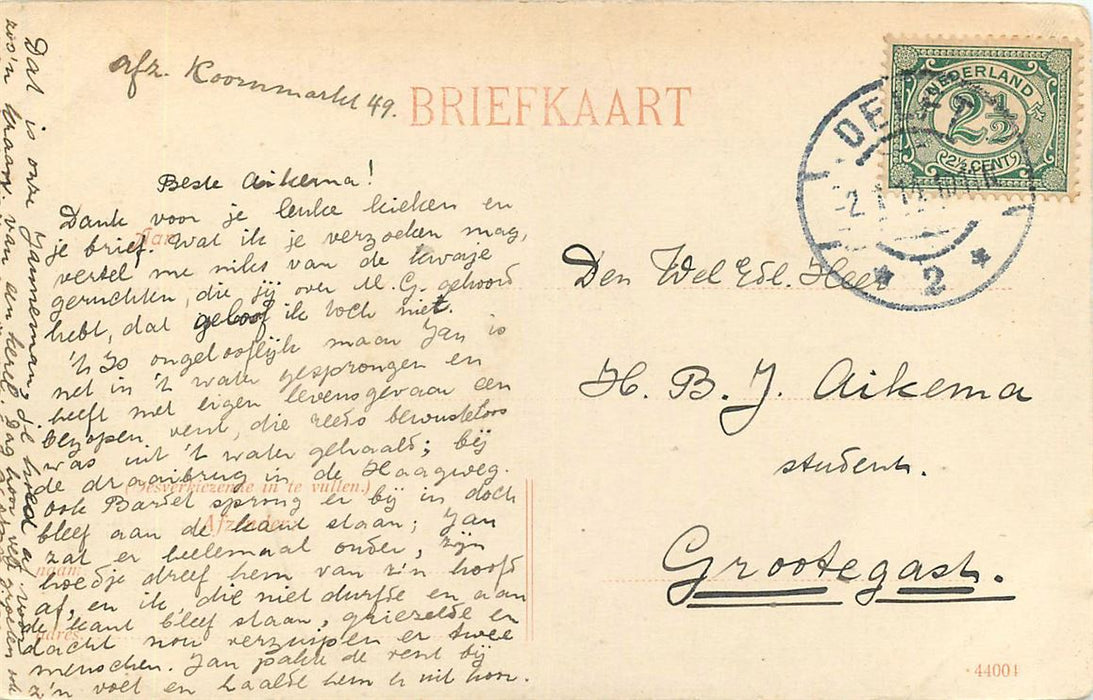 afz. Koornmarkt 49.
BRIEFKAART
Beste Aikema!
Dank voor je leuke kieken en
je brief. Wat ik je verzoeken mag,
vertel me niks van de kwaje
geruchten, die jij over M. G. gehoord
hebt, dat geloof ik toch niet.
't Is ongelooflijk maar Jan is
net in 't water gesprongen en
heeft met eigen levensgevaar een
bezopen vent, die reeds bewusteloos
was uit 't water gehaald; bij
de draaibrug in de Haagweg.
ook Bardet sprong er bij in doch
bleef aan de kant staan; Jan
zat er heelemaal onder, zijn
hoedje dreef hem van z'n hoofd
af, en ik, die niet durfde en aan
de kant bleef staan, griezelde en
dacht nou verzuipen er twee
menschen. Jan pakte de vent bij
z'n voet en haalde hem er uit hoor.
Dat is onze Janneman, de hoed af voor
zoo'n kraan van een kerel. Dag hoor veel groeten
Aan
(Desverkiezende in te vullen.)
Afzender:
naam
adres.
NEDERLAND
2½
2½ CENT
DELFT
-2
2
Den Wel Edl. Heer
H. B. J. Aikema
student.
Grootegast.
44004